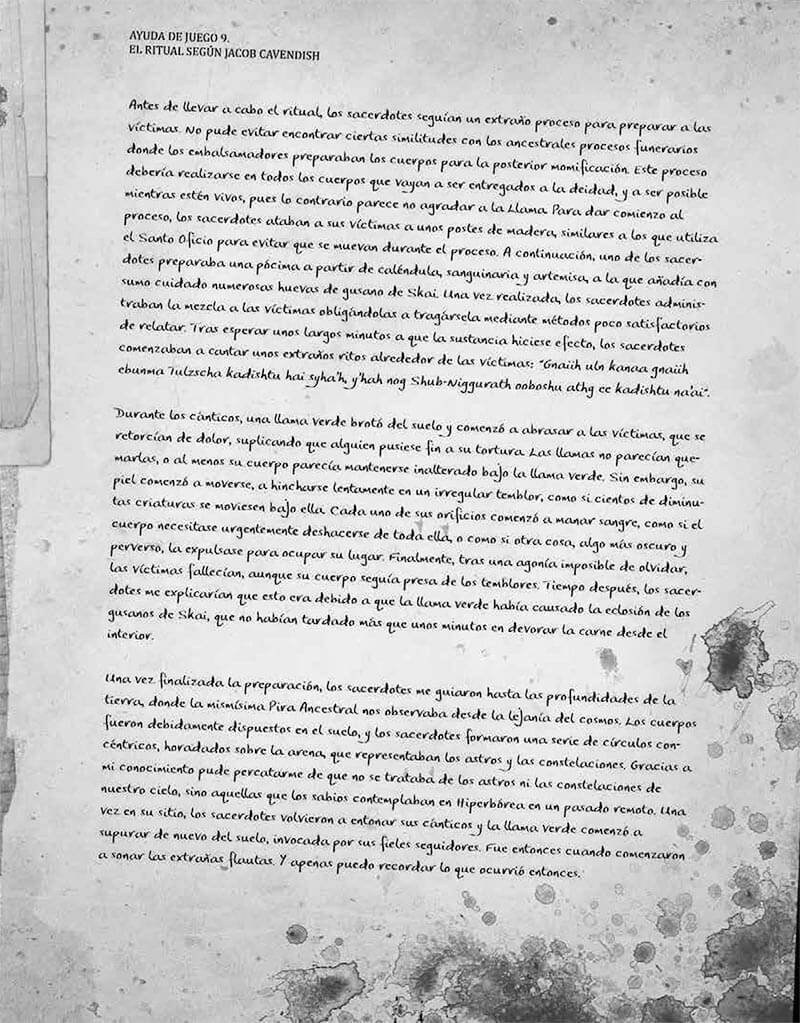 AYUDA DE JUEGO 9.
EL RITUAL SEGÚN JACOB CAVENDISH
Antes de llevar a cabo el ritual, los sacerdotes seguían un extraño proceso para preparar a las
víctimas. No pude evitar encontrar ciertas similitudes con los ancestrales procesos funerarios
donde los embalsamadores preparaban los cuerpos para la posterior momificación. Este proceso
debería realizarse en todos los cuerpos que vayan a ser entregados a la deidad, y a ser posible
mientras estén vivos, pues lo contrario parece no agradar a la Llama. Para dar comienzo al
proceso, los sacerdotes ataban a sus víctimas a unos postes de madera, similares a los que utiliza
el Santo Oficio para evitar que se muevan durante el proceso. A continuación, uno de los sacer-
dotes preparaba una pócima a partir de caléndula, sanguinaria y artemisa, a la que añadía con
sumo cuidado numerosas huevas de gusano de Skai. Una vez realizada, los sacerdotes adminis-
traban la mezcla a las víctimas obligándolas a tragársela mediante métodos poco satisfactorios
de relatar. Tras esperar unos largos minutos a que la sustancia hiciese efecto, los sacerdotes
comenzaban a cantar unos extraños ritos alrededor de las víctimas: "Gnaiih uln kanaa gnaiih
ebunma Tulzscha kadishtu hai syha'h, y'hah nog Shub-Niggurath ooboshu athg ee kadishtu na'ai".
Durante los cánticos, una llama verde brotó del suelo y comenzó a abrasar a las víctimas, que se
retorcían de dolor, suplicando que alguien pusiese fin a su tortura. Las llamas no parecían que-
marlas, o al menos su cuerpo parecía mantenerse inalterado bajo la llama verde. Sin embargo, su
piel comenzó a moverse, a hincharse lentamente en un irregular temblor, como si cientos de diminu-
tas criaturas se moviesen bajo ella. Cada uno de sus orificios comenzó a manar sangre, como si el
cuerpo necesitase urgentemente deshacerse de toda ella, o como si otra cosa, algo más oscuro y
perverso, la expulsase para ocupar su lugar. Finalmente, tras una agonía imposible de olvidar,
las víctimas fallecían, aunque su cuerpo seguía presa de los temblores. Tiempo después, los sacer-
dotes me explicarían que esto era debido a que la llama verde había causado la eclosión de los
gusanos de Skai, que no habían tardado más que unos minutos en devorar la carne desde el
interior.
Una vez finalizada la preparación, los sacerdotes me guiaron hasta las profundidades de la
tierra, donde la mismísima Pira Ancestral nos observaba desde la lejanía del cosmos. Los cuerpos
fueron debidamente dispuestos en el suelo, y los sacerdotes formaron una serie de círculos con-
céntricos, horadados sobre la arena, que representaban los astros y las constelaciones. Gracias a
mi conocimiento pude percatarme de que no se trataba de los astros ni las constelaciones de
nuestro cielo, sino aquellas que los sabios contemplaban en Hiperbórea en un pasado remoto. Una
vez en su sitio, los sacerdotes volvieron a entonar sus cánticos y la llama verde comenzó a
supurar de nuevo del suelo, invocada por sus fieles seguidores. Fue entonces cuando comenzaron
a sonar las extrañas flautas. Y apenas puedo recordar lo que ocurrió entonces.